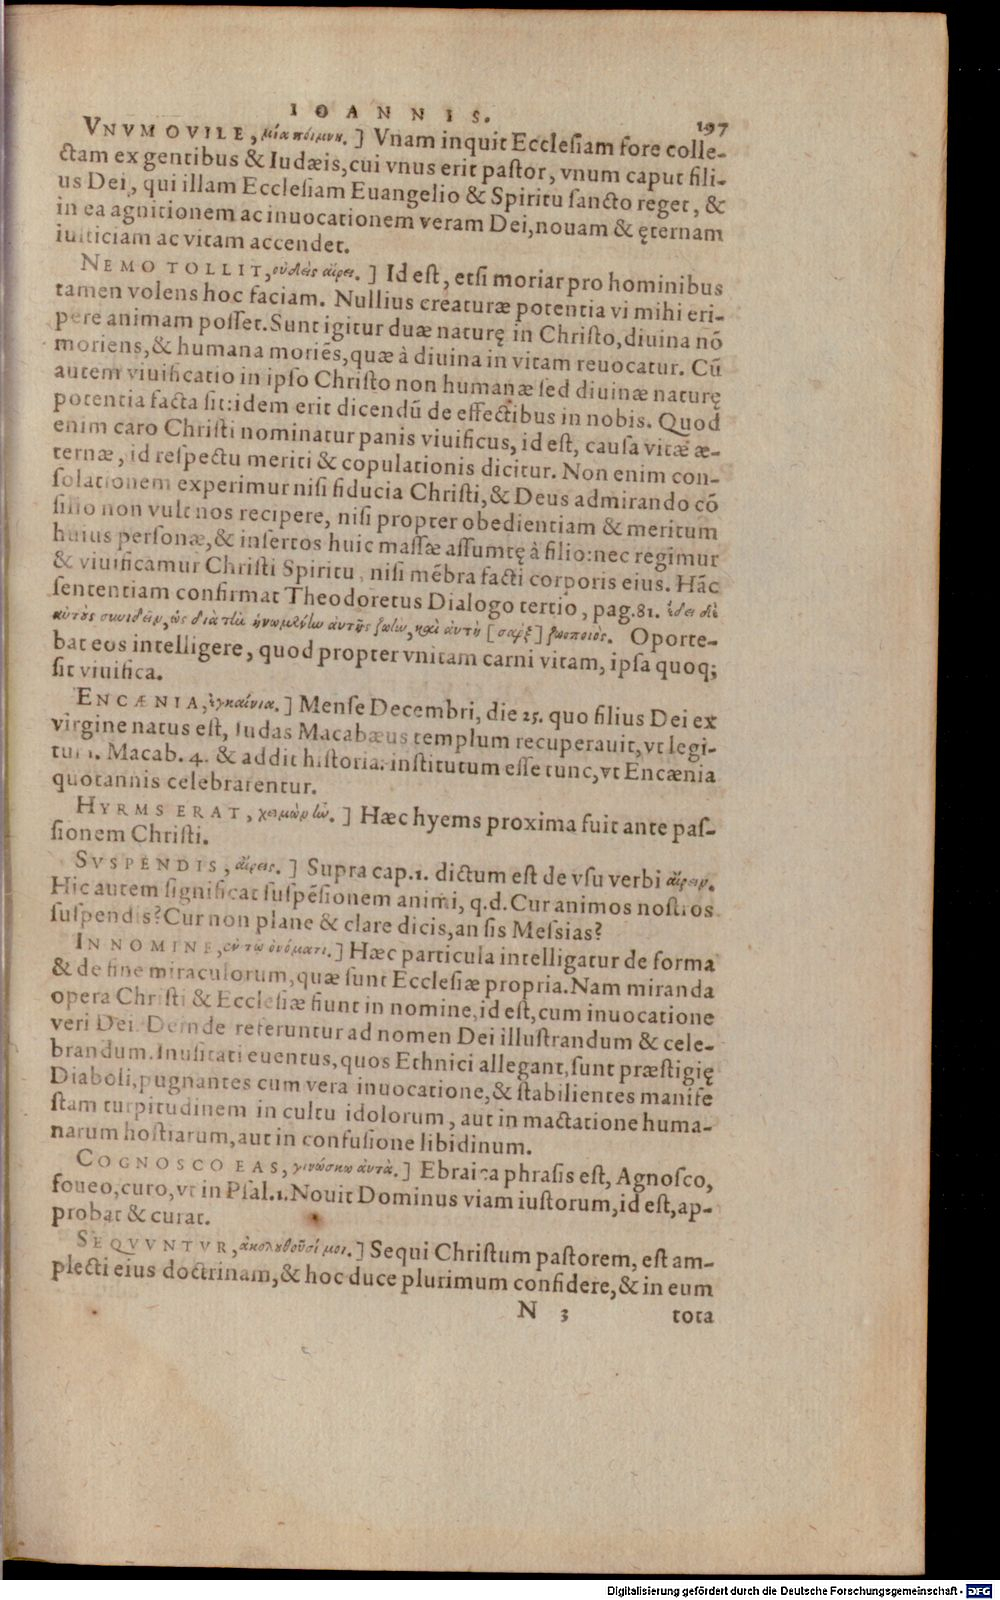 IOANNIS. 197
VNVM OVILE, μία ποίμνη. ] Vnam inquit Ecclesiam fore colle-
ctam ex gentibus & Iudæis, cui vnus erit pastor, vnum caput fili-
us Dei, qui illam Ecclesiam Euangelio & Spiritu sancto reget, &
in ea agnitionem ac inuocationem veram Dei, nouam & ęternam
iusticiam ac vitam accendet.
NEMO TOLLIT, οὐδεὶς αἴρει. ] Id est, etsi moriar pro hominibus
tamen volens hoc faciam. Nullius creaturæ potentia vi mihi eri-
pere animam posset. Sunt igitur duæ naturę in Christo, diuina nō
moriens, & humana moriēs, quæ à diuina in vitam reuocatur. Cū
autem viuificatio in ipso Christo non humanæ sed diuinæ naturę
potentia facta sit: idem erit dicendū de effectibus in nobis. Quod
enim caro Christi nominatur panis viuificus, id est, causa vitæ æ-
ternæ, id respectu meriti & copulationis dicitur. Non enim con-
solationem experimur nisi fiducia Christi, & Deus admirando cō
silio non vult nos recipere, nisi propter obedientiam & meritum
huius personæ, & insertos huic massæ assumtę à filio: nec regimur
& viuificamur Christi Spiritu, nisi mēbra facti corporis eius. Hāc
sententiam confirmat Theodoretus Dialogo tertio, pag. 81. ἔδει δὲ
αὐτοὺς συνιδεῖν, ὡς διὰ τὴν ἡνωμένην αὐτῆς ζωὴν, καὶ αὐτὴ [σαρξ] ζωοποιός. Oporte-
bat eos intelligere, quod propter vnitam carni vitam, ipsa quoq;
sit viuifica.
ENCÆNIA, ἐγκαίνια. ] Mense Decembri, die 25. quo filius Dei ex
virgine natus est, Iudas Macabæus templum recuperauit, vt legi-
tur 1. Macab. 4. & addit historia: institutum esse tunc, vt Encænia
quotannis celebrarentur.
HYEMS ERAT, χειμὼν ἦν. ] Hæc hyems proxima fuit ante pas-
sionem Christi.
SVSPENDIS, αἴρεις. ] Supra cap. 1. dictum est de vsu verbi αἴρειν.
Hic autem significat suspēsionem animi, q.d. Cur animos nostros
suspendis? Cur non plane & clare dicis, an sis Messias?
IN NOMINE, ἐν τῷ ὀνόματι. ] Hæc particula intelligatur de forma
& de fine miraculorum, quæ sunt Ecclesiæ propria. Nam miranda
opera Christi & Ecclesiæ fiunt in nomine, id est, cum inuocatione
veri Dei. Deinde referuntur ad nomen Dei illustrandum & cele-
brandum. Inusitati euentus, quos Ethnici allegant, sunt præstigię
Diaboli, pugnantes cum vera inuocatione, & stabilientes manife
stam turpitudinem in cultu idolorum, aut in mactatione huma-
narum hostiarum, aut in confusione libidinum.
COGNOSCO EAS, γινώσκω αὐτά. ] Ebraica phrasis est, Agnosco,
foueo, curo, vt in Psal. 1. Nouit Dominus viam iustorum, id est, ap-
probat & curat.
SEQVVNTVR, ἀκολουθοῦσί μοι. ] Sequi Christum pastorem, est am-
plecti eius doctrinam, & hoc duce plurimum confidere, & in eum
N 3 tota
Digitalisierung gefördert durch die Deutsche Forschungsgemeinschaft - DFG